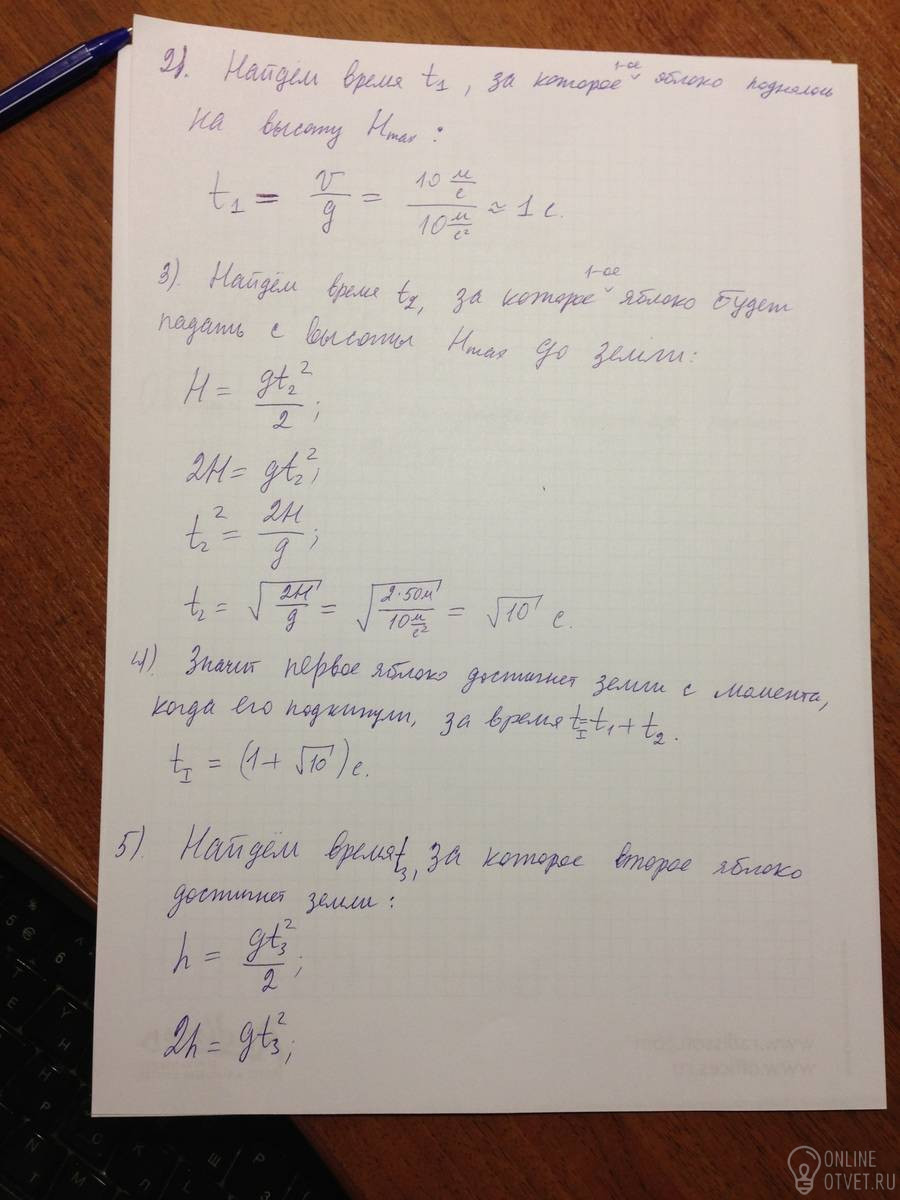 2). Найдём время t₁, за которое 1-ое яблоко поднялось
на высоту Hmax:
t₁ = v/g = 10 м/с / 10 м/с² ≈ 1 с.
3). Найдём время t₂, за которое 1-ое яблоко будет
падать с высоты Hmax до земли:
H = gt₂²/2;
2H = gt₂²;
t₂² = 2H/g;
t₂ = √(2H/g) = √(2·50м/10 м/с²) = √10 с.
4). Значит первое яблоко достигнет земли с момента,
когда его подкинули, за время t_I = t₁ + t₂.
t_I = (1 + √10) с.
5). Найдём время t₃, за которое второе яблоко
достигнет земли:
h = gt₃²/2;
2h = gt₃²;
www.radisson.com
ONLINE
OTVET.RU